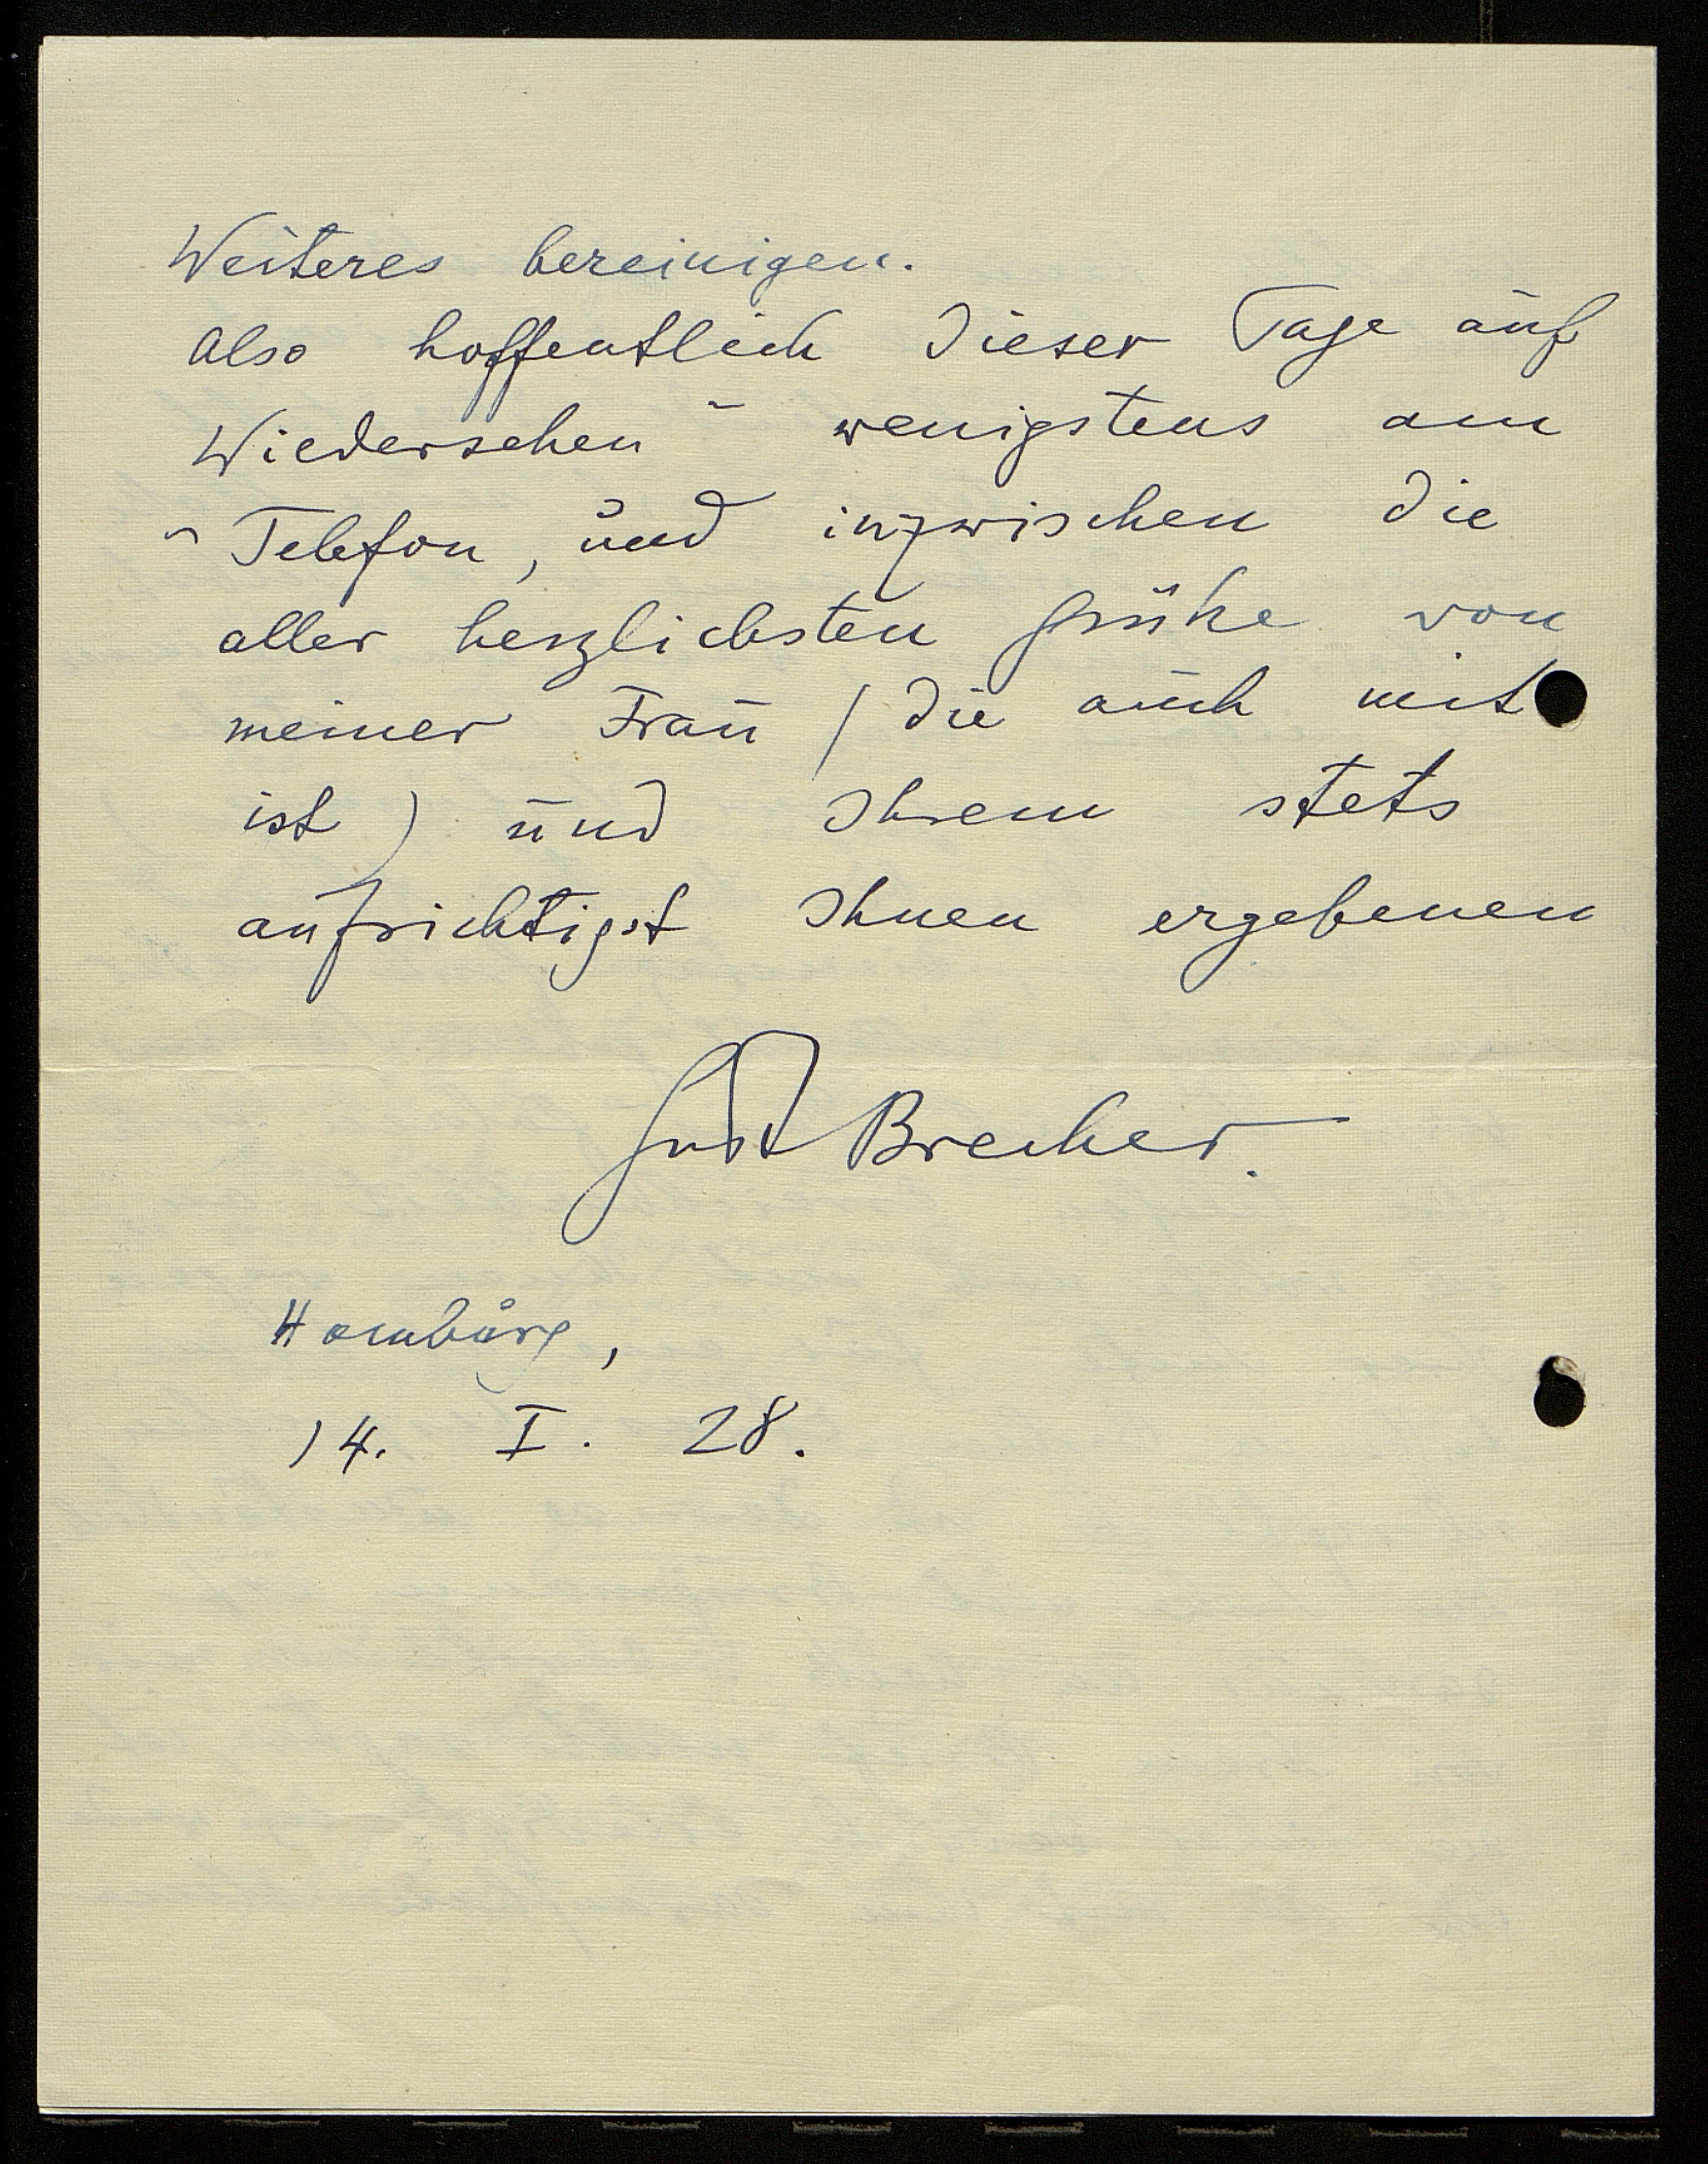 Weiteres bereinigen.
Also hoffentlich dieser Tage auf
Wiedersehen - wenigstens am
- Telefon, und inzwischen die
aller herzlichsten Grüße von
meiner Frau (die auch mit
ist) und Ihrem stets
aufrichtigst Ihnen ergebenen
Gust Brecher.
Hamburg,
14. I. 28.